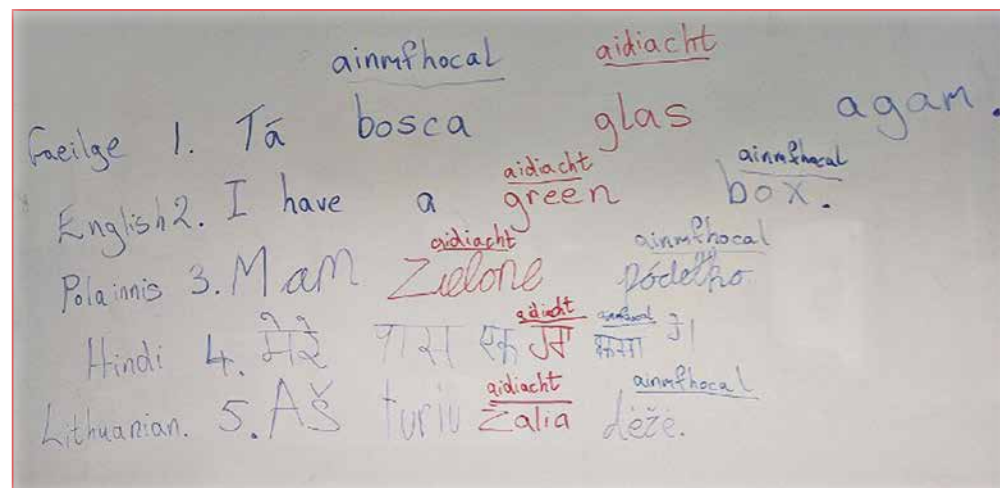 ainmfhocal aidiacht
Gaeilge 1. Tá bosca glas agam.
aidiacht ainmfhocal
English 2. I have a green box.
aidiacht ainmfhocal
Polainnis 3. Mam Zielone
aidiacht ainmfhocal
Hindi 4. मेरे पास एक
aidiacht ainmfhocal
Lithuanian. 5. Aš turiu Žalia dėžė.